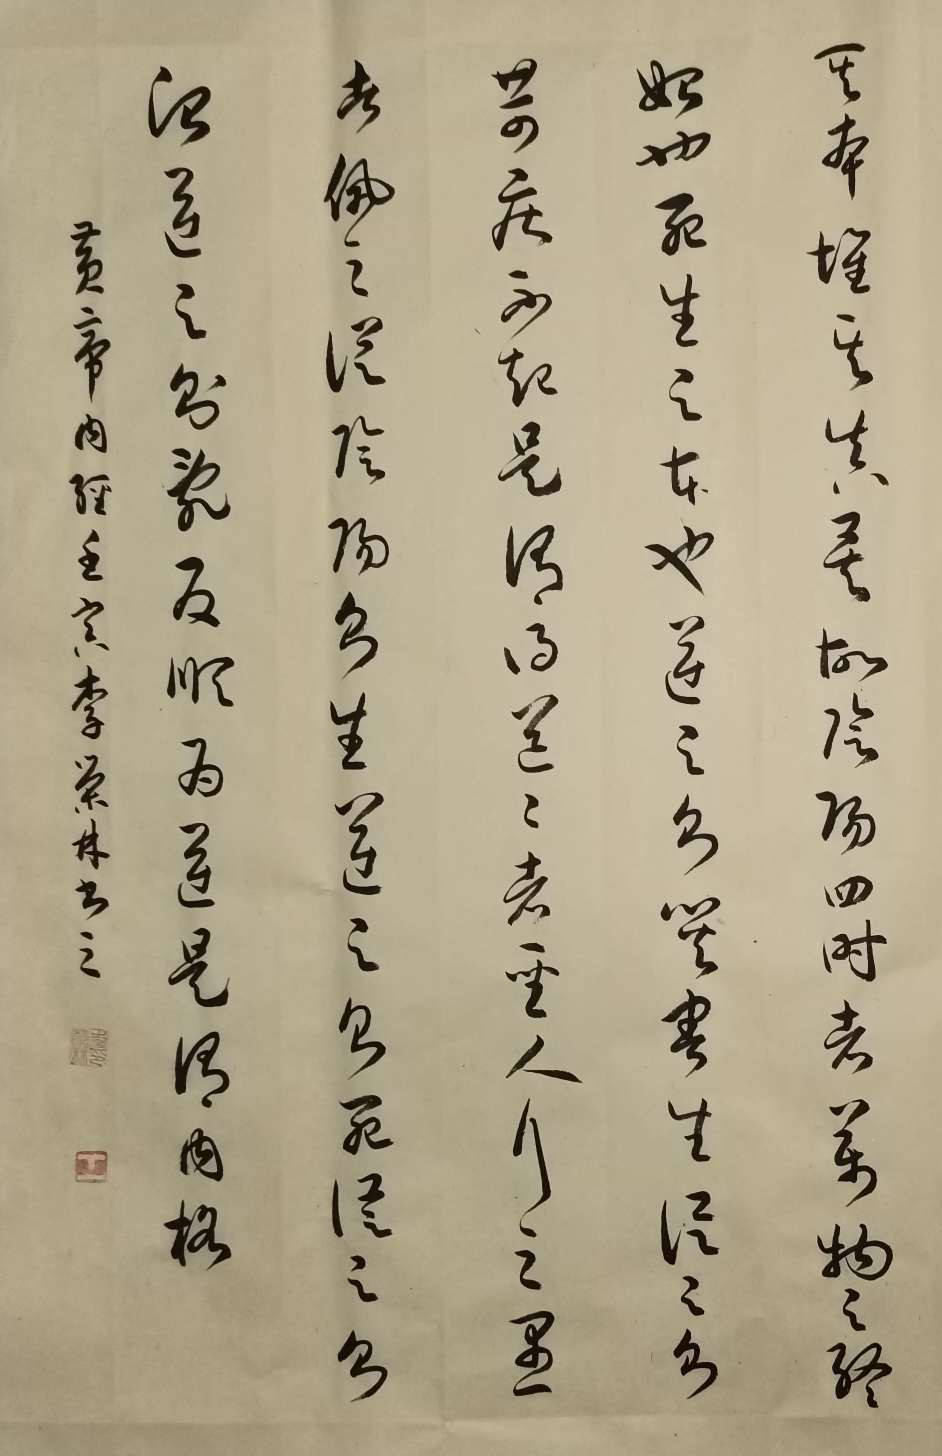 其本壞其真矣故陰陽四時者萬物之終
始也死生之本也逆之則災害生從之則
苛疾不起是謂得道々者聖人行之愚
者佩之從陰陽則生逆之則死從之則
治逆之則亂反順為逆是謂內格
黃帝內經壬寅李榮林書之